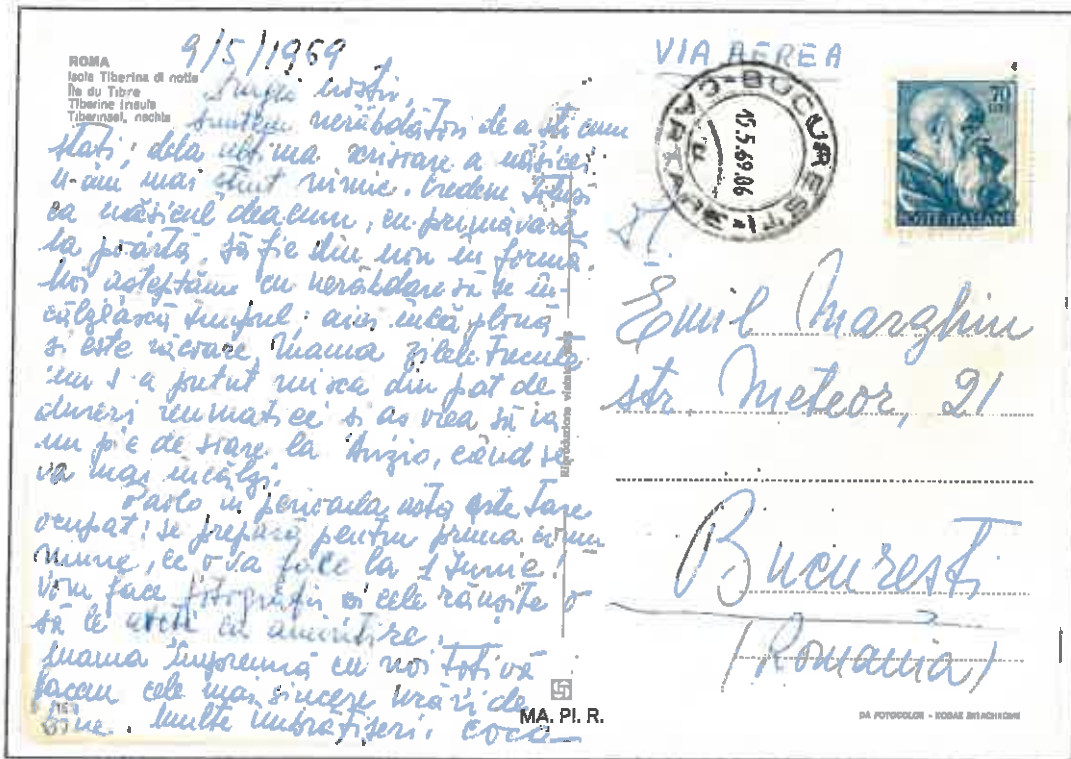 ROMA
Isola Tiberina di notte
Île du Tibre
Tiberine Insula
Tiberinsel, nachts
9/5/1969
Dragii noștri,
suntem nerăbdători de a ști cum
stați; dela ultima scrisoare a nășicăi
n-am mai știut nimic. Credem însă
ca nășicul deacum, cu primăvara
la poartă, să fie din nou în formă.
Noi așteptăm cu nerăbdare să se în-
călzească timpul; aici încă plouă
și este răcoare, Mama zilele trecute
nu s-a putut mișca din pat de
dureri reumatice și aș vrea să ia
un pic de soare la Anzio, când se
va mai încălzi.
Paolo în perioada asta este tare
ocupat: se prepară pentru prima comu
niune, ce o va face la 1 Iunie!
Vom face fotografii și cele reușite o
să le aveți ca amintire.
Mama împreună cu noi toți vă
facem cele mai sincere urări de
bine. Multe îmbrățișeri, Coca
VIA AEREA
BUCUREȘTI
CARTARE
10.5.69.06
70
LIRE
POSTE ITALIANE
Emil Marghim
str. Meteor, 21
București
(Romania)
Riproduzione vietata
MA. PI. R.
DA FOTOCOLOR - KODAK EKTACHROME